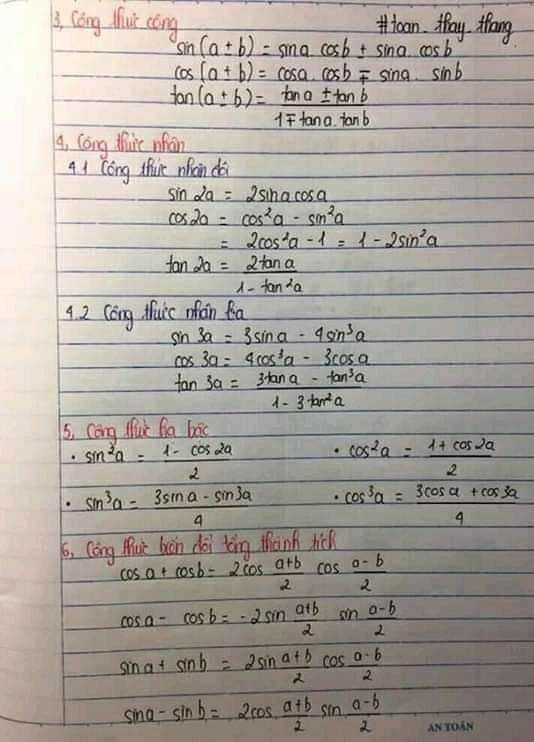 3, Công thức cộng #toan_thay_thang
sin(a ± b) = sina cosb ± sina cosb
cos(a ± b) = cosa. cosb ∓ sina. sinb
tan(a ± b) = (tana ± tanb)/(1 ∓ tana.tanb)
4, Công thức nhân
4.1 Công thức nhân đôi
sin 2a = 2sina cosa
cos2a = cos²a - sin²a
= 2cos²a - 1 = 1 - 2sin²a
tan 2a = 2tana/(1 - tan²a)
4.2 Công thức nhân ba
sin 3a = 3sina - 4sin³a
cos 3a = 4cos³a - 3cosa
tan 3a = (3tana - tan³a)/(1 - 3tan²a)
5, Công thức hạ bậc
• sin²a = (1 - cos2a)/2 • cos²a = (1 + cos2a)/2
• sin³a = (3sina - sin3a)/4 • cos³a = (3cosa + cos3a)/4
6, Công thức biến đổi tổng thành tích
cosa + cosb = 2cos (a+b)/2 cos (a-b)/2
cosa - cosb = -2sin (a+b)/2 sin (a-b)/2
sina + sinb = 2sin (a+b)/2 cos (a-b)/2
sina - sinb = 2cos (a+b)/2 sin (a-b)/2
AN TOÀN